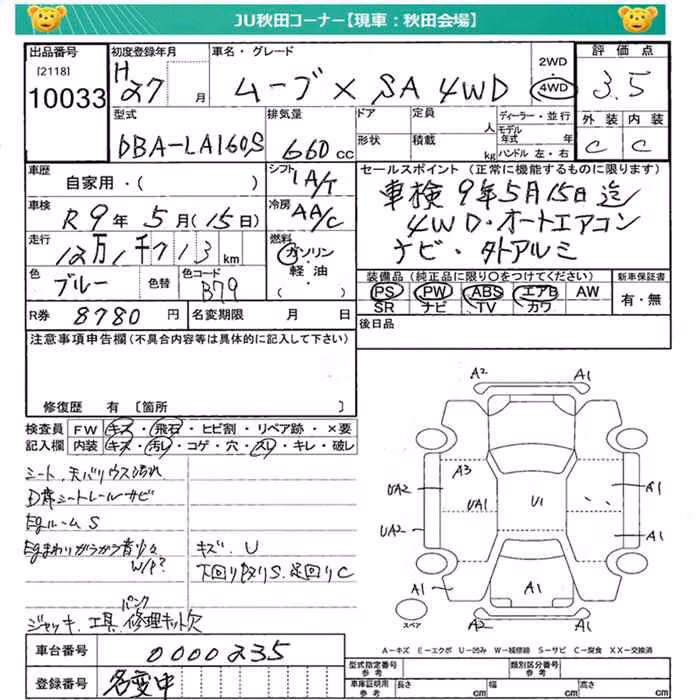 JU秋田コーナー【現車：秋田会場】
出品番号
[2118]
10033
初度登録年月
H
27 月
車名・グレード
ムーブ X SA 4WD
2WD
4WD
評価点
3.5
外装 内装
C C
型式
DBA-LA160S
排気量
660 cc
ドア
形状
定員
人
積載
kg
ディーラー・並行
モデル年式 年
ハンドル 左・右
車歴
自家用・( )
シフト
IA/T
車検
R 9 年 5 月 (15 日)
冷房
AA/C
走行
12万1千713 km
燃料
ガソリン
軽油
( ・ )
色
ブルー
色替
色コード
B79
R券 8780 円
名変期限 月 日
セールスポイント (正常に機能するものに限ります)
車検 9年5月15日迄
4WD・オートエアコン
ナビ・夕トアルミ
装備品 (純正品に限り○をつけてください)
PS PW ABS エアB AW
SR ナビ TV カワ
新車保証書
有・無
後日品
注意事項申告欄 (不具合内容等は具体的に記入して下さい)
修復歴 有 〔箇所 〕
検査員記入欄
FW キズ・飛石・ヒビ割・リペア跡・×要
内装 キズ・汚レ・コゲ・穴・スレ・キレ・破レ
シート、天バリ ウス汚れ
D席シートレールサビ
Egルーム S
Egまわりガラガラ音少々
W/P?
キズ、U
下回りサビS、足回りC
パンク
ジャッキ、工具、修理キット欠
A2 A1
A3
UA2 UA1 U1 A1
UA2 A1
A1 A1
A2 A1
スペア
A－キズ E－エクボ U－凹み W－補修跡 S－サビ C－腐食 XX－交換済
車台番号
0000235
登録番号
名変中
型式指定番号
類別区分番号
車庫証明用参考
長さ cm
幅 cm
高さ cm